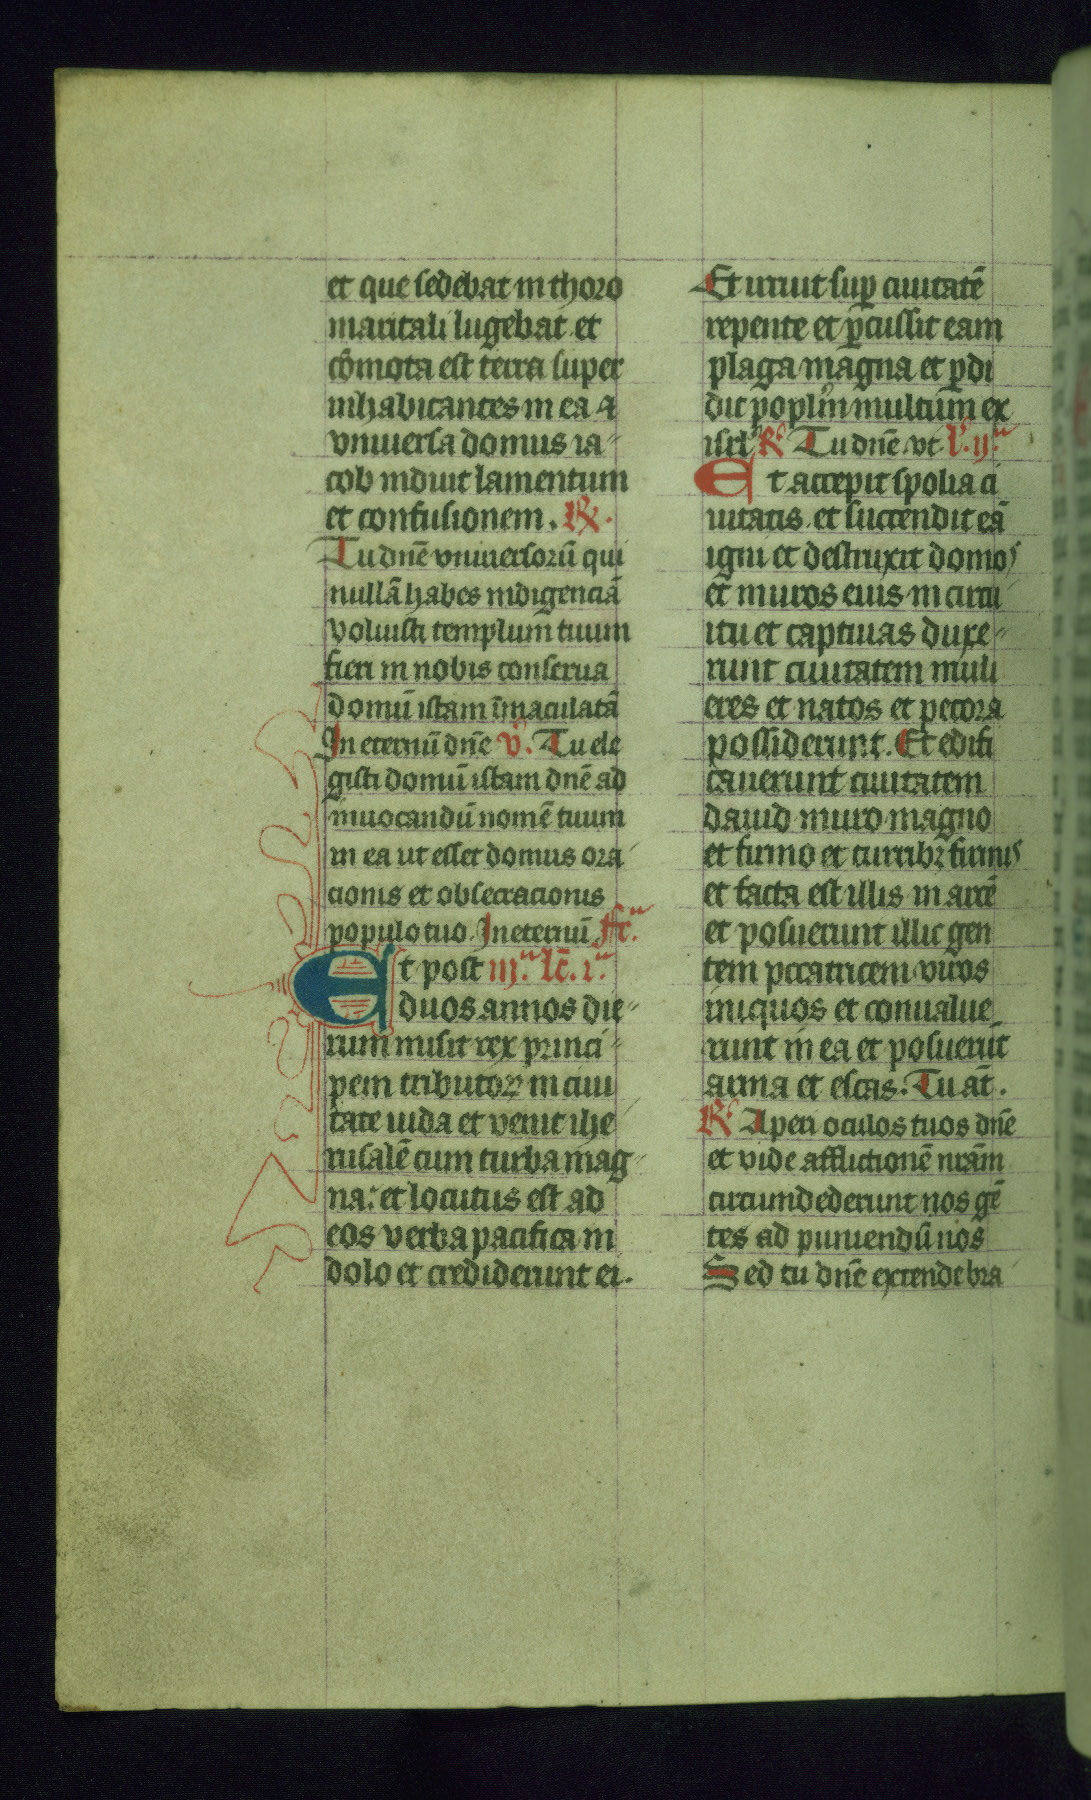 et que sedebat in thoro
maritali lugebat et
cōmota est terra super
inhabitantes in ea ⁊
vniuersa domus ia-
cob induit lamentum
et confusionem. R̸.
Tu dn̄e vniuersorū qui
nullā habes indigenciā
voluisti templum tuum
fieri in nobis conserua
domū istam īmaculatā
In eternū dn̄e v̸. Tu ele
gisti domū istam dn̄e ad
inuocandū nomē tuum
in ea ut esset domus ora
cionis et obsecracionis
populo tuo. In eternū
Et post iij.ᵃ lc̄. i.ᵃ
duos annos die-
rum misit rex princi-
pem tributoꝝ in ciui
tate iuda et venit ihe
rusalē cum turba mag-
na: et locutus est ad
eos verba pacifica in
dolo et crediderunt ei.
Et irruit suꝑ ciuitatē
repente et ꝑcussit eam
plaga magna et ꝑdi
dit popl̄m multum ex
isrl̄ R̸ Tu dn̄e vt l̄. ij.ᵃ
Et accepit spolia ci
uitatis et succendit eā
igni et destruxit domos
et muros eius in circu
itu et captiuas duxe-
runt ciuitatem muli
eres et natos et pecora
possiderunt. Et edifi
cauerunt ciuitatem
dauid muro magno
et firmo et turribꝫ firmis
et facta est illis in arcē
et posuerunt illic gen
tem pccatricem viros
iniquos et conualue
runt in ea et posuerūt
arma et escas. Tu at̄.
R̸ Aperi oculos tuos dn̄e
et vide afflictionē nr̄am
circumdederunt nos gē
tes ad puniendū nos
Sed tu dn̄e extende bra